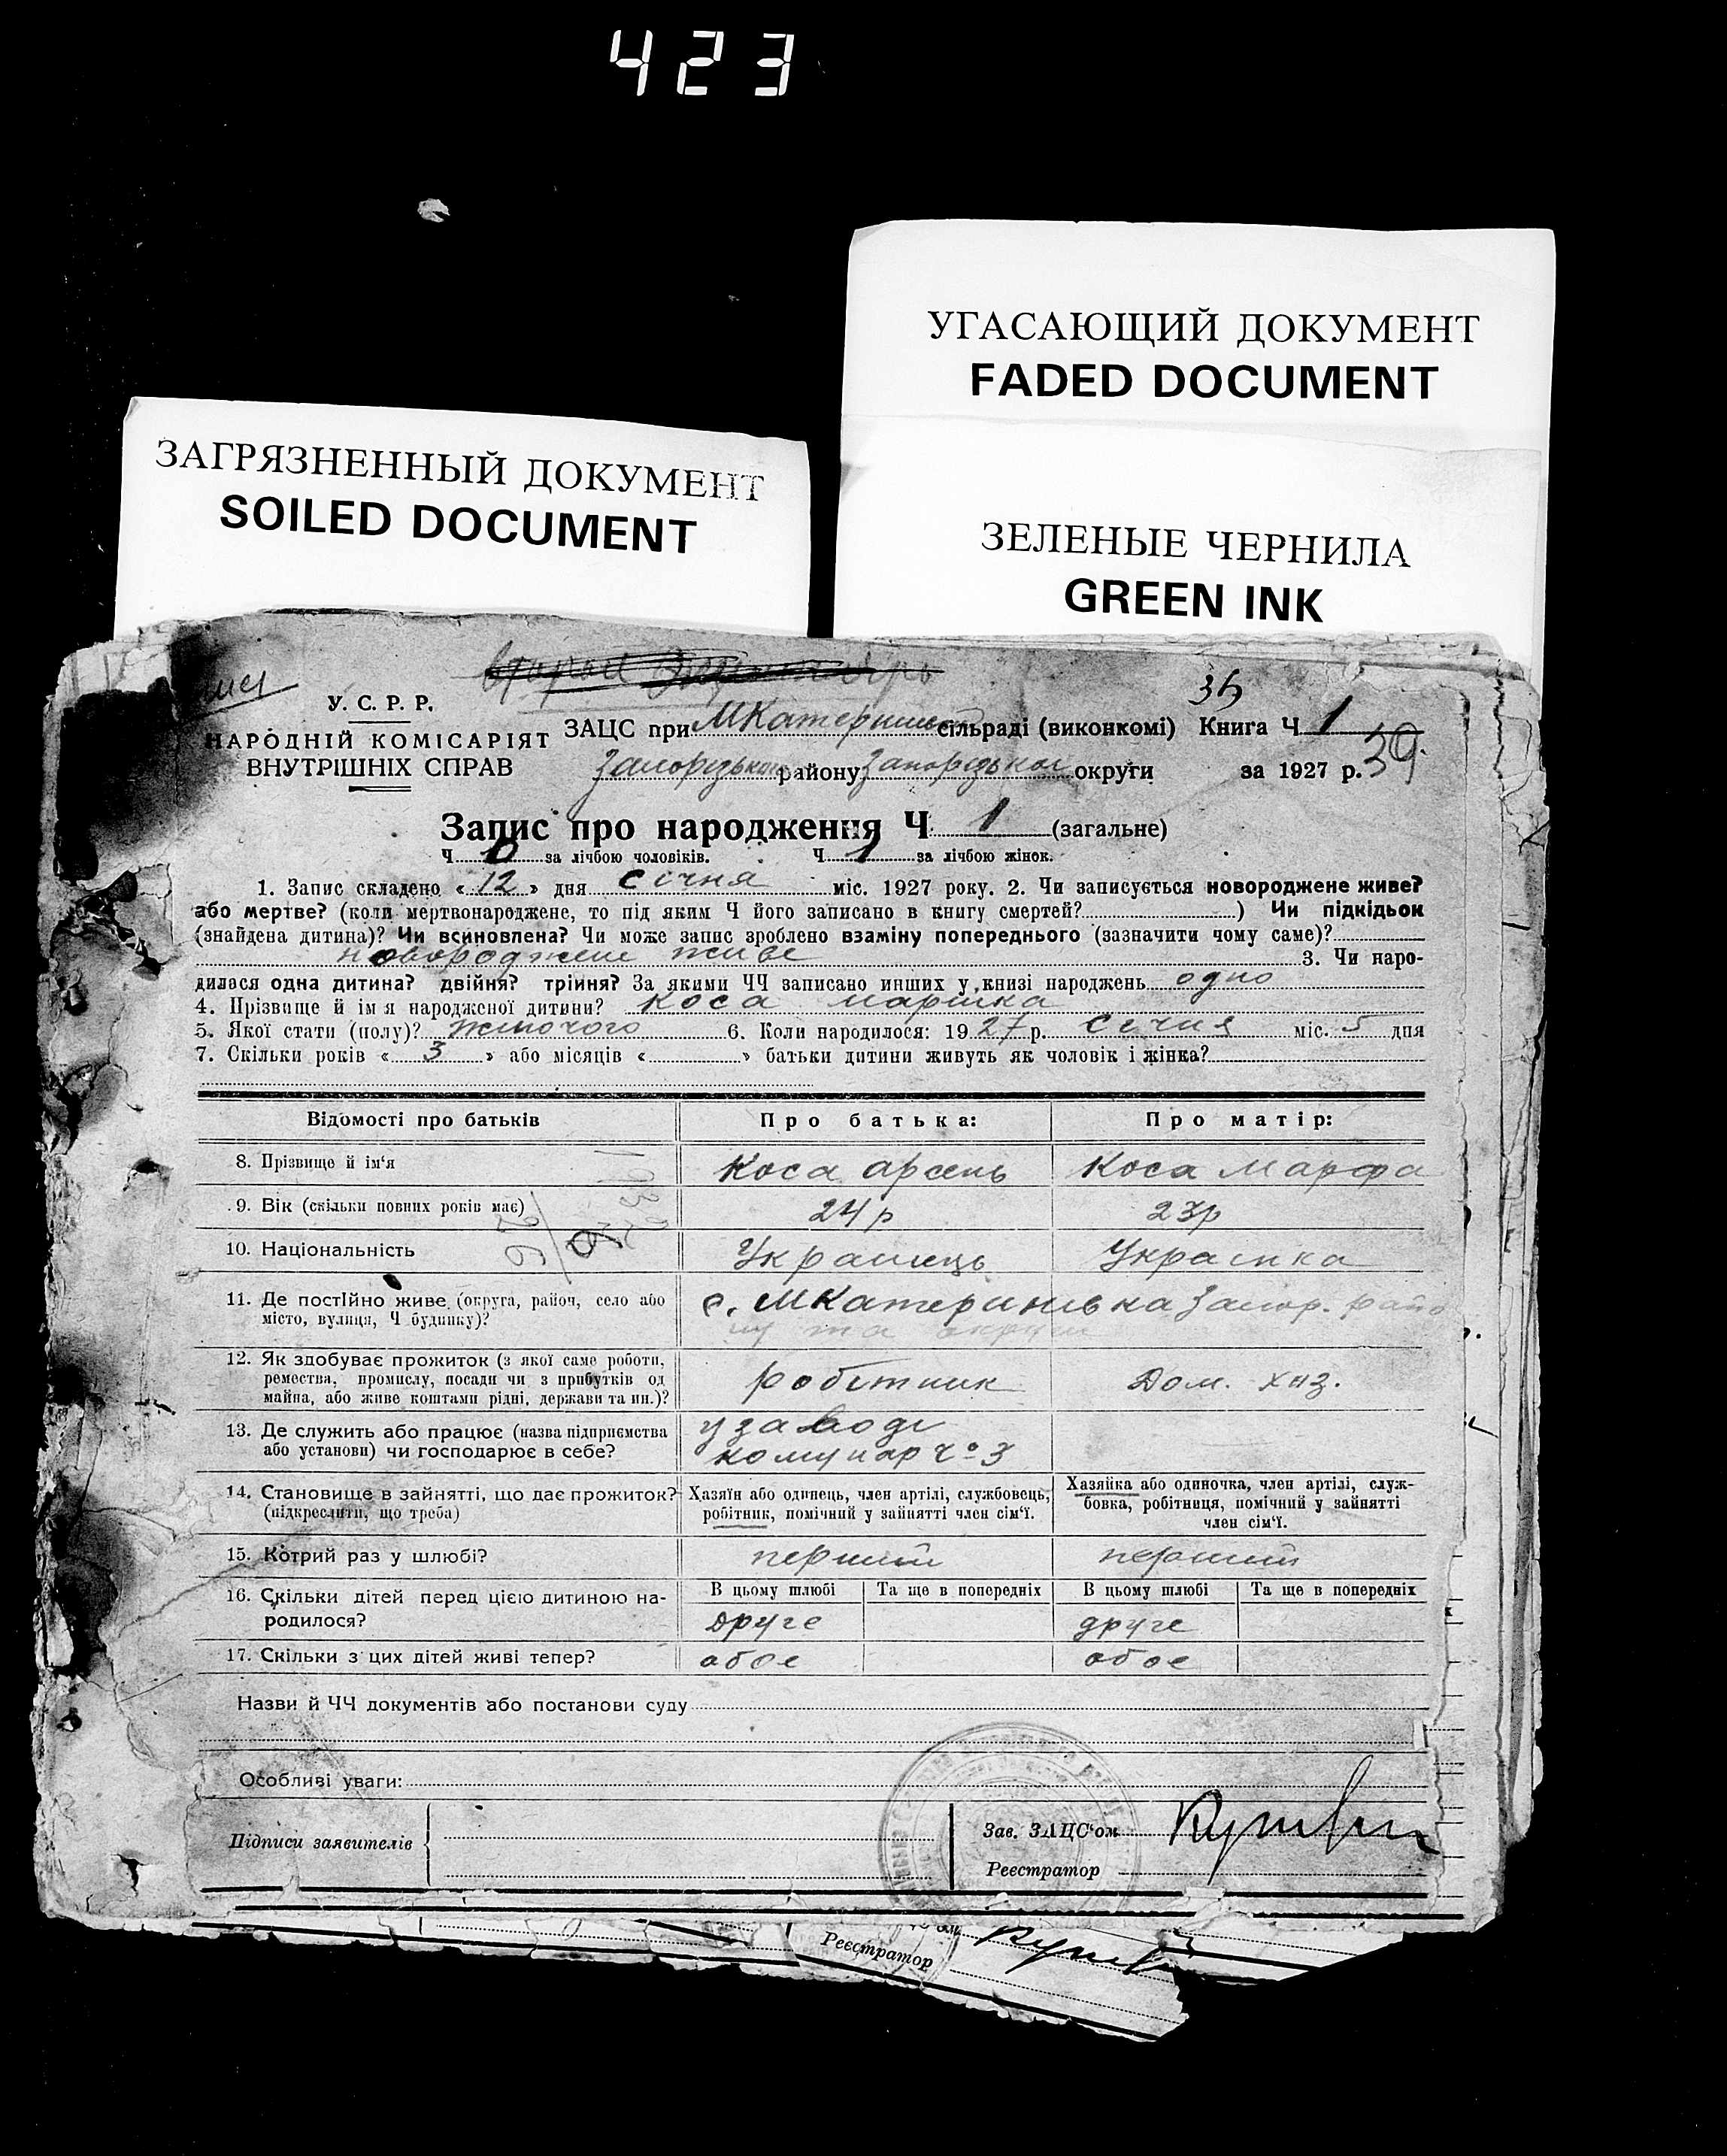 423
УГАСАЮЩИЙ ДОКУМЕНТ
FADED DOCUMENT
ЗАГРЯЗНЕННЫЙ ДОКУМЕНТ
SOILED DOCUMENT
ЗЕЛЕНЫЕ ЧЕРНИЛА
GREEN INK
У. С. Р. Р.
НАРОДНІЙ КОМІСАРІЯТ
ВНУТРІШНІХ СПРАВ
ЗАЦС при МКатеринів сільраді (виконкомі) Книга Ч 1
Запорізького району Запорізької округи за 1927 р. 39
Запис про народження Ч 1 (загальне)
Ч 0 за лічбою чоловіків. Ч 1 за лічбою жінок.
1. Запис складено «12» дня січня міс. 1927 року. 2. Чи записується новороджене живе?
або мертве? (коли мертвонароджене, то під яким Ч його записано в книгу смертей?) Чи підкідьок
(знайдена дитина)? Чи всиновлена? Чи може запис зроблено взаміну попереднього (зазначити чому саме)?
новороджене живе 3. Чи наро-
дилася одна дитина? двійня? трійня? За якими ЧЧ записано инших у книзі народжень одно
4. Прізвище й ім'я народженої дитини? Коса Марійка
5. Якої стати (полу)? жіночого 6. Коли народилося: 1927 р. січня міс. 5 дня
7. Скільки років «3» або місяців « » батьки дитини живуть як чоловік і жінка?
Відомості про батьків Про батька: Про матір:
8. Прізвище й ім'я Коса Арсень Коса Марфа
9. Вік (скільки повних років має) 24 р 23 р
10. Національність Українець Українка
11. Де постійно живе (округа, район, село або
місто, вулиця, Ч будинку)? с. МКатеринівка Запор. райо
ну та округи
12. Як здобуває прожиток (з якої саме роботи,
ремества, промислу, посади чи з прибутків од
майна, або живе коштами рідні, держави та ин.)? робітник Дом. хаз.
13. Де служить або працює (назва підприємства
або установи) чи господарює в себе? у заводі
комунар Ч° 3
14. Становище в зайнятті, що дає прожиток?
(підкреслити, що треба)
Хазяїн або одинець, член артілі, службовець,
робітник, помічний у зайнятті член сім'ї.
Хазяйка або одиночка, член артілі, служ-
бовка, робітниця, помічний у зайнятті
член сім'ї.
15. Котрий раз у шлюбі? перший перший
16. Скільки дітей перед цією дитиною на-
родилося?
В цьому шлюбі Та ще в попередніх В цьому шлюбі Та ще в попередніх
друге друге
17. Скільки з цих дітей живі тепер? обоє обоє
Назви й ЧЧ документів або постанови суду
Особливі уваги:
Підписи заявителів
Зав. ЗАЦС'ом
Реєстратор
Реєстратор